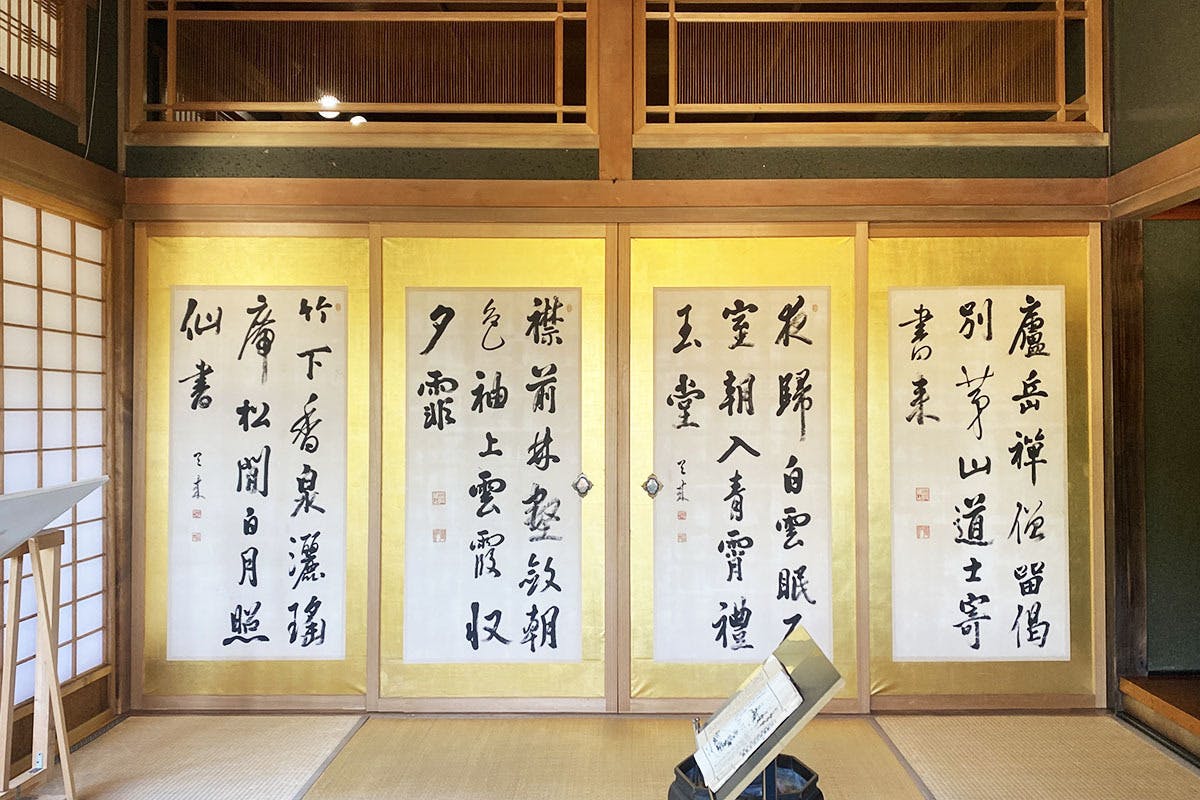 廬岳禅僧留偈
別茅山道士寄
書来
夜歸白雲眠
室朝入青霄禮
玉堂
襟前林壑斂朝
色袖上雲霞収
夕霏
竹下香泉灑瑤
席松間白月照
仙書